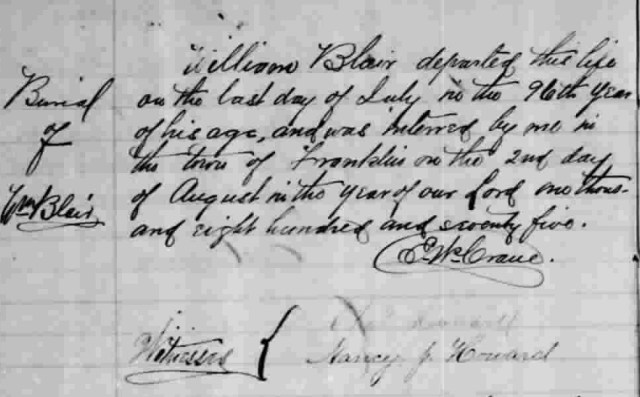 Burial
of
Wm Blair
William Blair departed this life
on the last day of July in the 96th year
of his age, and was interred by me in
the town of Franklin on the 2nd day
of August in the year of our Lord one thous-
and eight hundred and seventy five.
E. McCrane.
Witnesses
Nancy J Howard